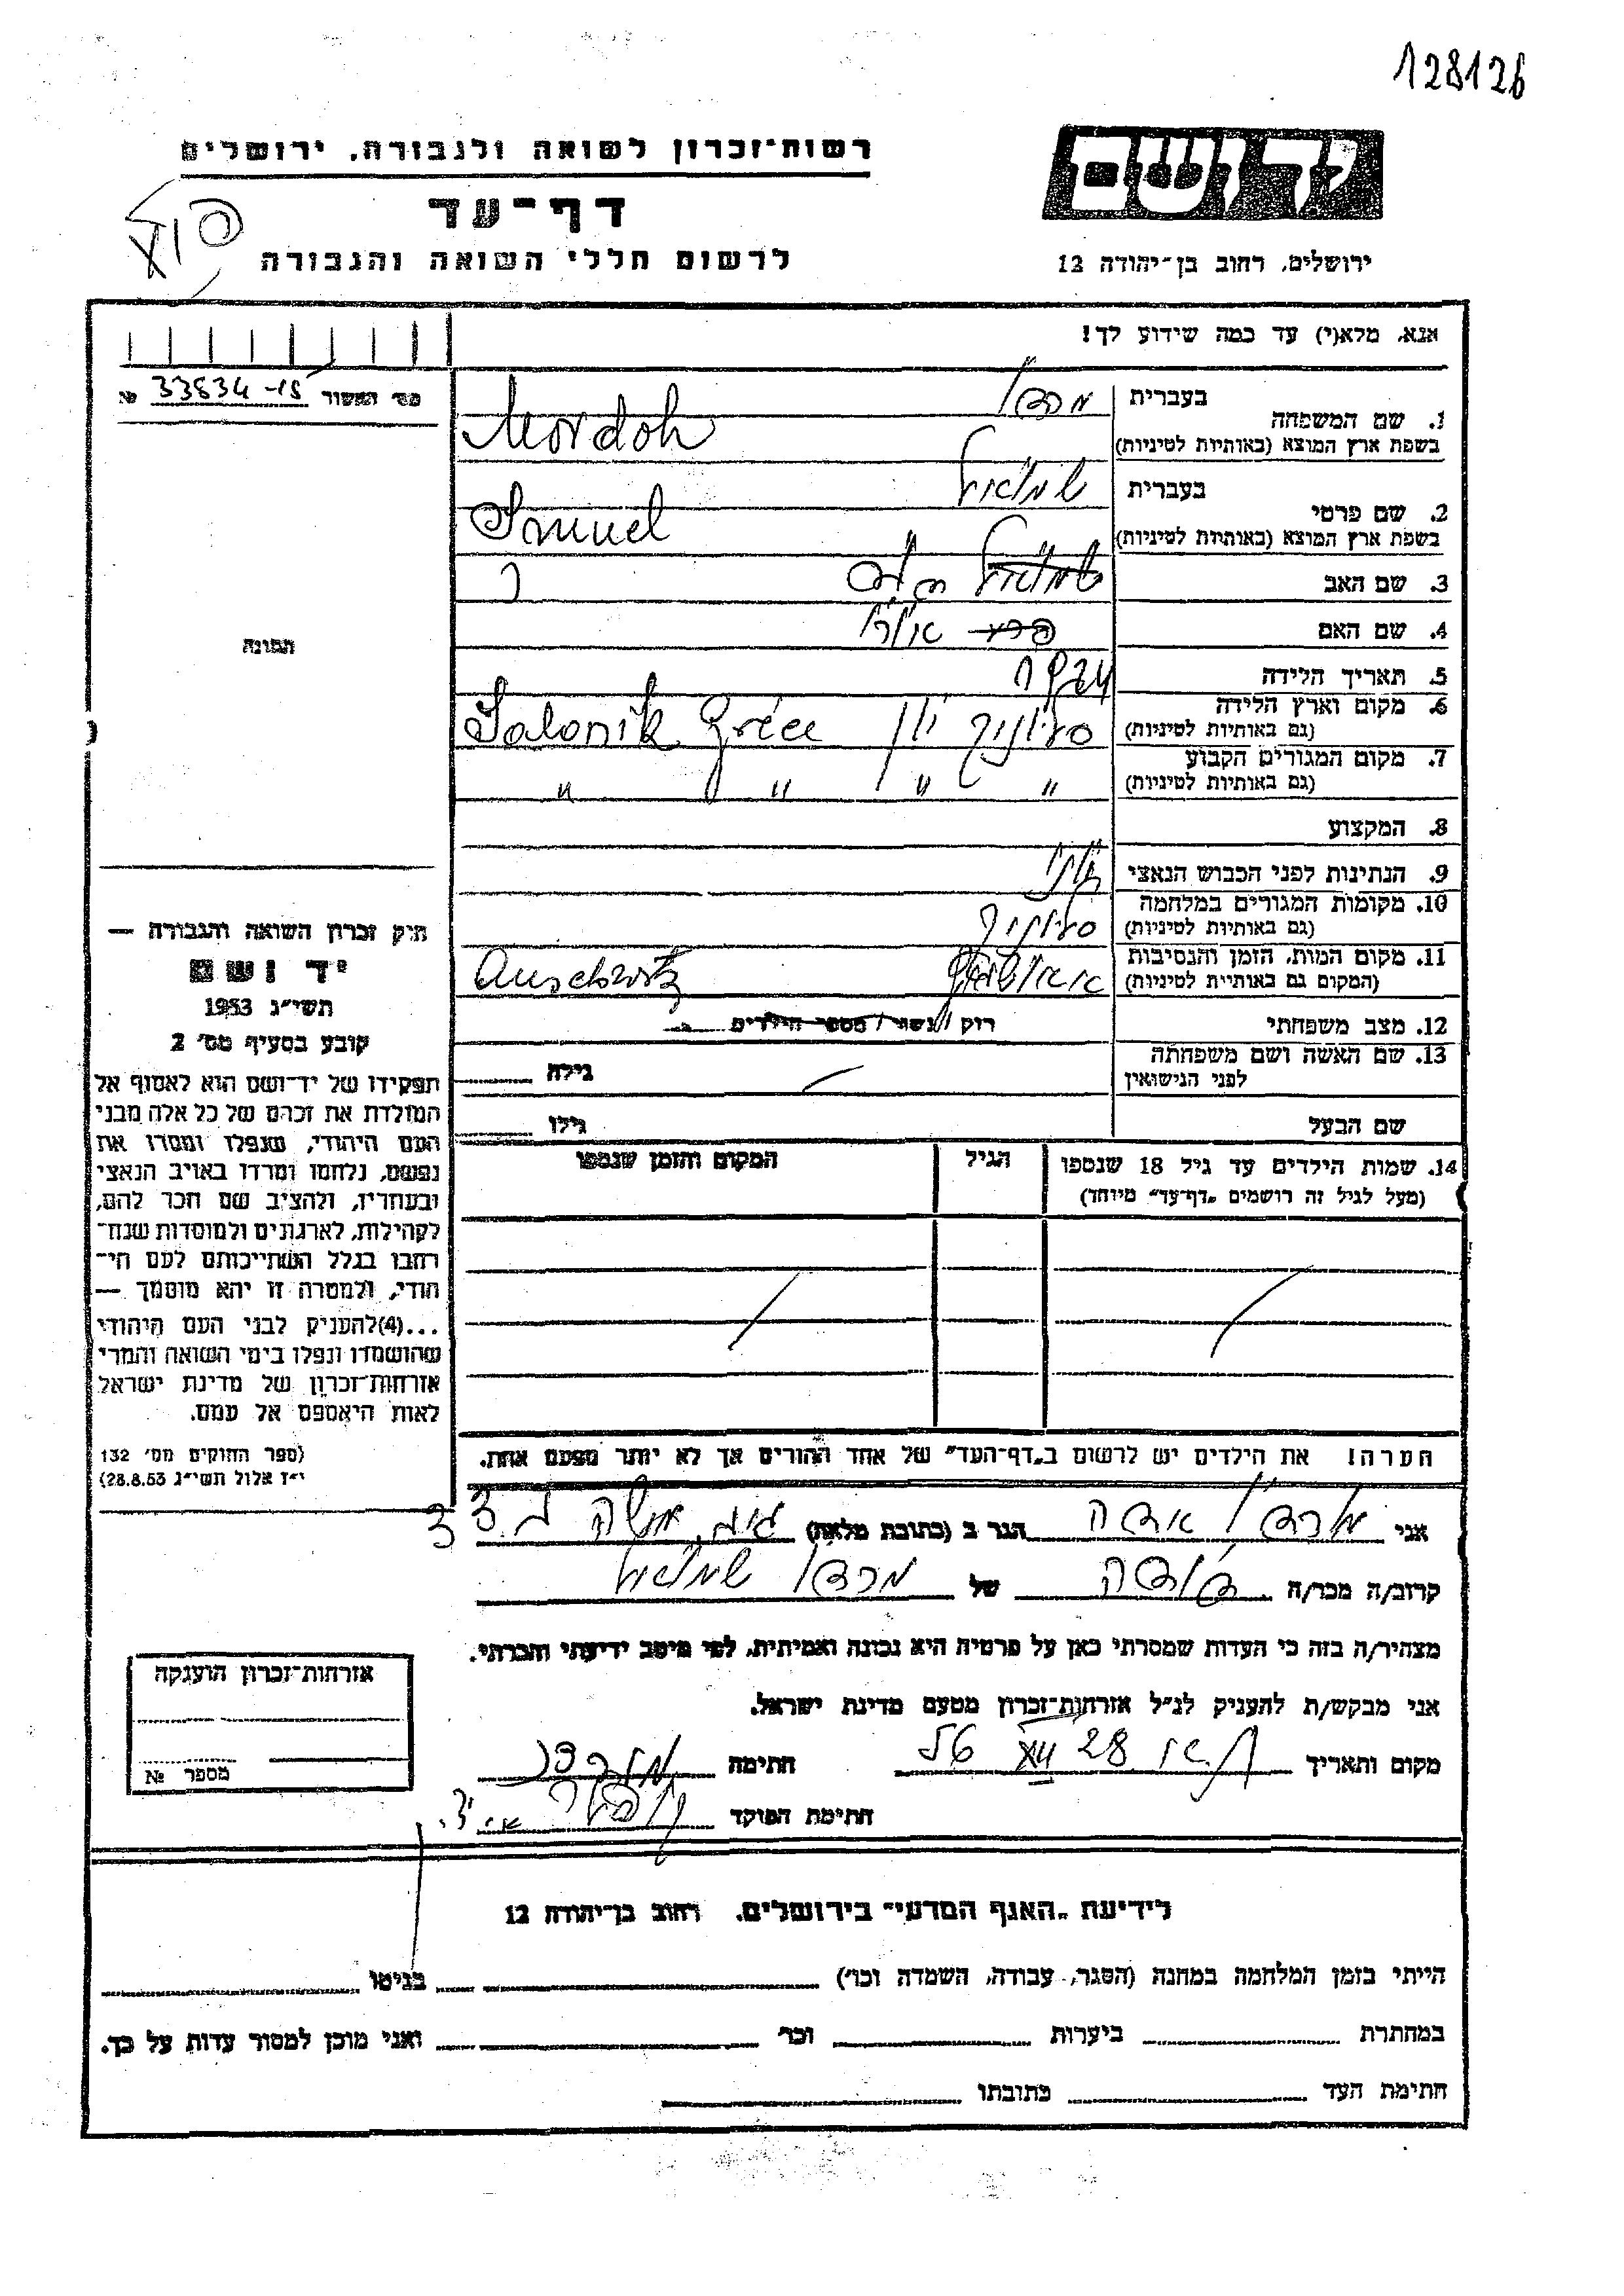 128126
רשות־זכרון לשואה ולגבורה, ירושלים
דף־עד
לרשום חללי השואה והגבורה
יד ושם
ירושלים, רחוב בן־יהודה 12
אנא, מלא(י) עד כמה שידוע לך!
מס׳ המשור 33834-15 №
תמונה
1. שם המשפחה בעברית
בשפת ארץ המוצא (באותיות לטיניות) Mordoh
2. שם פרטי בעברית שמואל
בשפת ארץ המוצא (באותיות לטיניות) Smuel
3. שם האב
4. שם האם
5. תאריך הלידה 1924
6. מקום וארץ הלידה סלוניקי יון Salonik Grèce
(גם באותיות לטיניות)
7. מקום המגורים הקבוע " " " "
(גם באותיות לטיניות)
8. המקצוע
9. הנתינות לפני הכבוש הנאצי
10. מקומות המגורים במלחמה סלוניקי
(גם באותיות לטיניות)
11. מקום המות, הזמן והנסיבות Auschwitz
(המקום גם באותיית לטיניות)
12. מצב משפחתי רוק / נשוי / מספר הילדים
13. שם האשה ושם משפחתה גילה
לפני הנישואין
שם הבעל גילו
14. שמות הילדים עד גיל 18 שנספו הגיל המקום והזמן שנספו
(מעל לגיל זה רושמים „דף־עד״ מיוחד)
חוק זכרון השואה והגבורה —
יד ושם
תשי״ג 1953
קובע בסעיף מס׳ 2
תפקידו של יד־ושם הוא לאסוף אל
המולדת את זכרם של כל אלה מבני
העם היהודי, שנפלו ומסרו את
נפשם, נלחמו ומרדו באויב הנאצי
ובעוזריו, ולהציב שם וזכר להם,
לקהילות, לארגונים ולמוסדות שנח־
רבו בגלל השתייכותם לעם הי־
הודי, ולמטרה זו יהא מוסמך —
...(4)להעניק לבני העם היהודי
שהושמדו ונפלו בימי השואה והמרי
אזרחות־זכרון של מדינת ישראל
לאות היאספם אל עמם.
(ספר החוקים מס׳ 132
י״ז אלול תשי״ג 28.8.53)
הערה! את הילדים יש לרשום ב„דף־העד״ של אחד ההורים אך לא יותר מפעם אחת.
אני הגר ב (כתובת מלאה) 33
קרוב/ה מכר/ה של שמואל
מצהיר/ה בזה כי העדות שמסרתי כאן על פרטיה היא נכונה ואמיתית, לפי מיטב ידיעתי והכרתי.
אני מבקש/ת להעניק לנ״ל אזרחות־זכרון מטעם מדינת ישראל.
מקום ותאריך 28 XII חתימה
חתימת הפוקד
אזרחות־זכרון הוענקה
מספר №
לידיעת „האגף המדעי״ בירושלים, רחוב בן־יהודה 12
הייתי בזמן המלחמה במחנה (הסגר, עבודה, השמדה וכו׳) בגיטו
במחתרת ביערות וכו׳ ואני מוכן למסור עדות על כך.
חתימת העד כתובתו